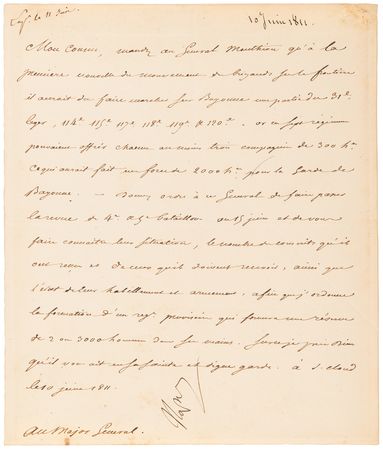 Exp. le 11 Juin.
10 Juin 1811.
Mon Cousin, mandez au Général Monthion qu'à la
première nouvelle du mouvement de brigands sur la frontière
il aurait du faire marcher sur Bayonne une partie des 31e
leger, 114e 115e 117e 118e 119e & 120e. or ces sept régimens
pouvaient offrir chacun au moins trois compagnies de 300 hes
ce qui aurait fait une force de 2000 hes pour la Garde de
Bayonne. — Donnez ordre à ce Général de faire passer
la revue de 4e & 5e bataillons au 15 juin et de vous
faire connaître leur situation, le nombre de conscrits qu'ils
ont reçu et de ceux qu'ils doivent recevoir, ainsi que
l'état de leur habillement et armement, afin que j'ordonne
la formation d'un régt provisoire qui formera une réserve
de 2 ou 3000 hommes dans ses mains. Sur ce je prie Dieu
qu'il vous ait en sa sainte et digne garde. à St. Cloud
le 10 juin 1811.
Nap
Au Major Général.